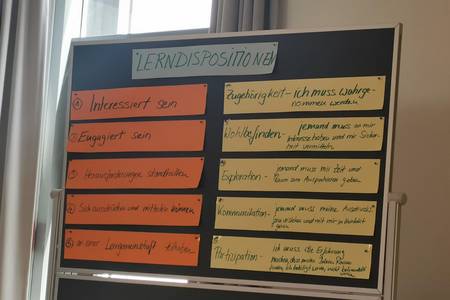 LERNDISPOSITIONEN
① Interessiert sein
② Engagiert sein
③ Herausforderungen standhalten
④ Sich ausdrücken und mitteilen können
⑤ an einer Lerngemeinschaft teilhaben
Zugehörigkeit – ich muss wahrge-
nommen werden
Wohlbefinden – jemand muss an mir
Interesse haben und mir Sicher-
heit vermitteln
Exploration – jemand muss mir Zeit und
Raum zum Ausprobieren geben
Kommunikation – jemand muss meine Ausdrucks
zu verstehen und mit mir in Kontakt
Partizipation – ich muss die Erfahrung
machen, dass meine